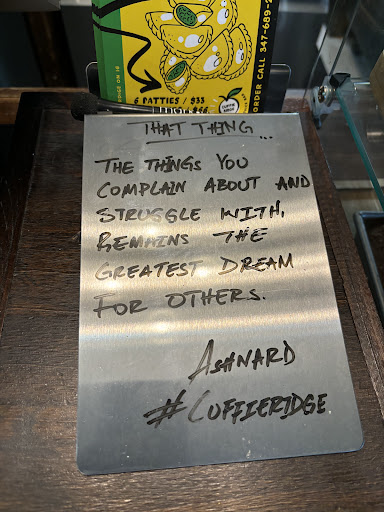 6 PATTIES / $33
ORDER CALL 347-689-2
THAT THING...
THE THINGS YOU
COMPLAIN ABOUT AND
STRUGGLE WITH,
REMAINS THE
GREATEST DREAM
FOR OTHERS.
ASHNARD
#COFFEERIDGE